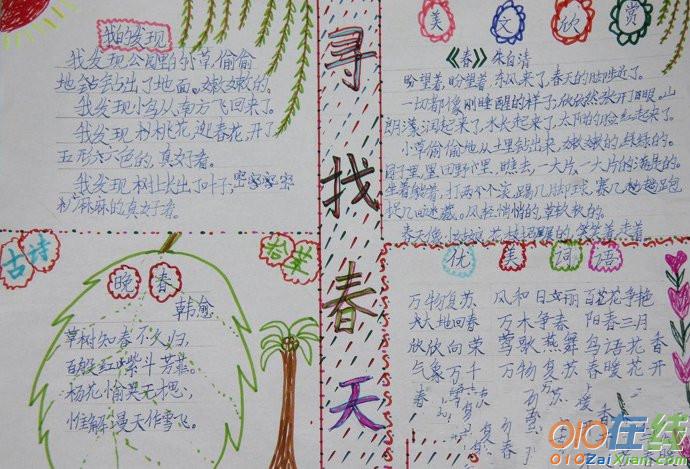 寻找春天
我的发现
我发现公园里的小草,偷偷
地会钻出了地面。嫩嫩的。
我发现小鸟从南方飞回来了。
我发现 桃花,迎春花,开了
五彩六色的,真好看。
我发现 树上长出了叶子,密密密密
麻麻的真好看。
美文欣赏
《春》 朱自清
盼望着,盼望着,东风来了,春天的脚步近了。
一切都像刚睡醒的样子,欣欣然张开了眼。山
朗润起来了,水长起来了,太阳的脸红起来了。
小草偷偷地从土里钻出来,嫩嫩的,绿绿的。
园子里,田野里,瞧去,一大片,一大片的满是的。
坐着,躺着,打两个个滚,踢几脚球,赛几趟跑
捉几回迷藏。风轻悄悄的,草软软的。
春天像 花枝招展的,笑着,走着
古诗
拾萃
晚春
韩愈
草树知春不久归,
百般红紫斗芳菲。
杨花愉荚无才思,
惟解漫天作雪飞。
优美词语
万物复苏 风和日丽 百花争艳
大地回春 万木争春 阳春三月
欣欣向荣 莺歌燕舞 鸟语花香
气象万千 万物复苏 春暖花开
010在线
010ZaiXian.com